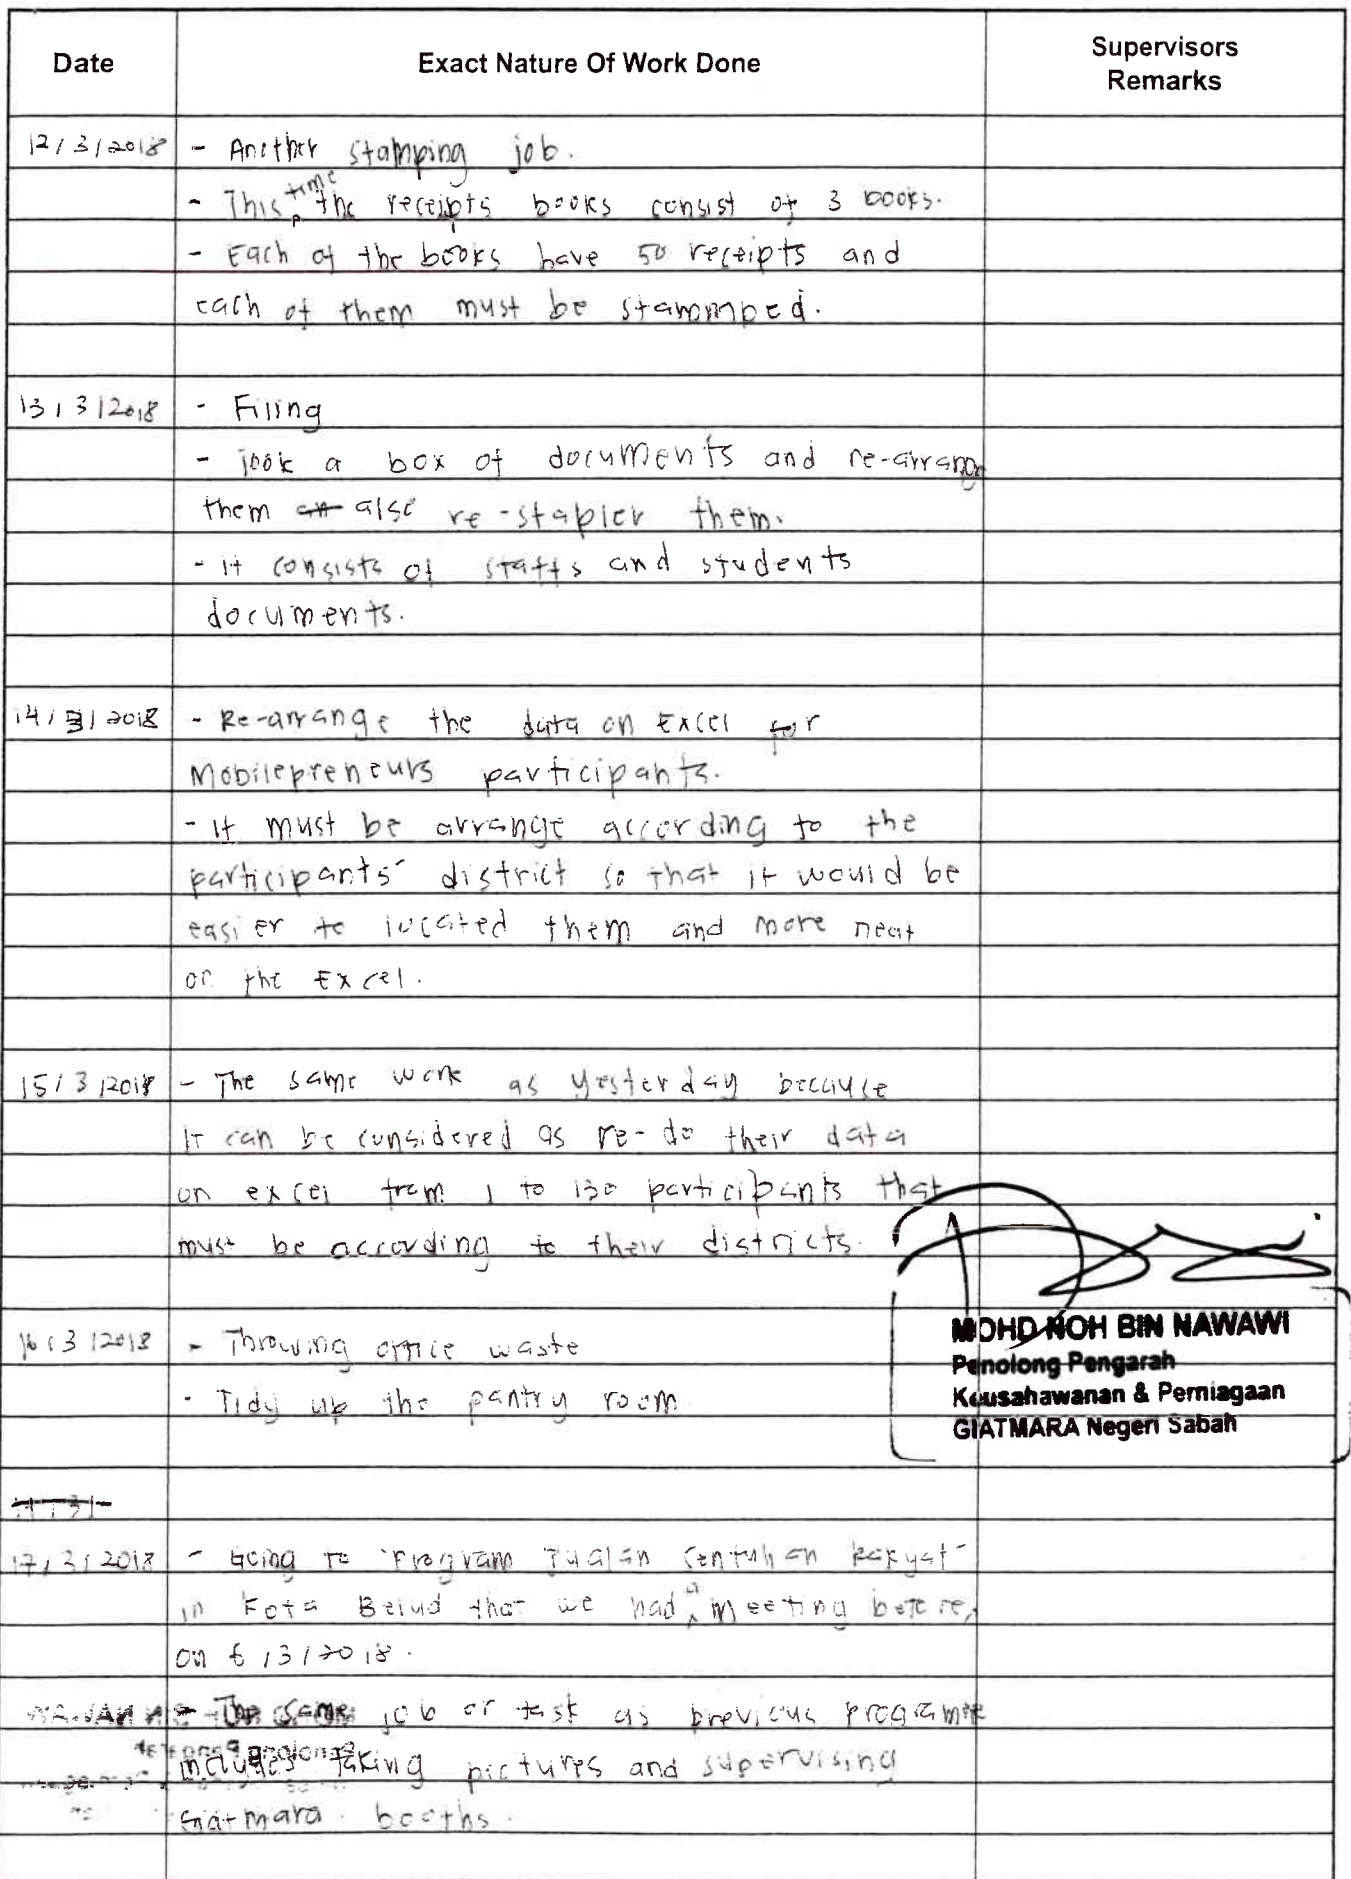 Date Exact Nature Of Work Done Supervisors
Remarks
12/3/2018 - Another stamping job.
- This time the receipts books consist of 3 books.
- Each of the books have 50 receipts and
each of them must be stammped.
13/3/2018 - Filing
- Took a box of documents and re-arrange
them also re-stapler them.
- It consists of staffs and students
documents.
14/3/2018 - Re-arrange the data on Excel for
Mobilepreneurs participants.
- It must be arrange according to the
participants' district so that it would be
easier to located them and more neat
on the Excel.
15/3/2018 - The same work as yesterday because
it can be considered as re-do their data
on excel from 1 to 130 participants that
must be according to their districts.
MOHD NOH BIN NAWAWI
16/3/2018 - Throwing office waste
Penolong Pengarah
- Tidy up the pantry room
Keusahawanan & Perniagaan
GIATMARA Negeri Sabah
17/3/2018 - Going to "Program Jualan Sentuhan Rakyat"
in Kota Belud that we had a meeting before,
on 6/3/2018.
- The same job or task as previous programme
includes taking pictures and supervising
Giatmara booths.